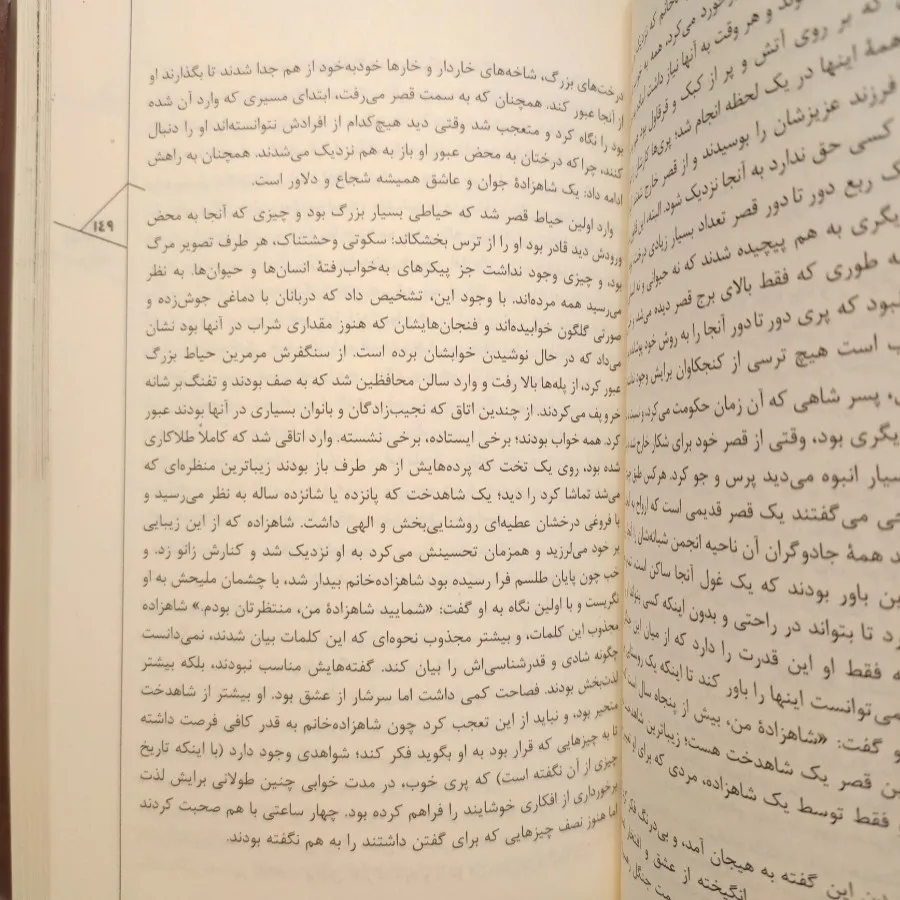 درخت‌های بزرگ، شاخه‌های خاردار و خارها خودبه‌خود از هم جدا شدند تا بگذارند او
از آنجا عبور کند. همچنان که به سمت قصر می‌رفت، ابتدای مسیری که وارد آن شده
بود را نگاه کرد و متعجب شد وقتی دید هیچ‌کدام از افرادش نتوانسته‌اند او را دنبال
کنند، چراکه درختان به محض عبور او باز به هم نزدیک می‌شدند. همچنان به راهش
ادامه داد: یک شاهزادهٔ جوان و عاشق همیشه شجاع و دلاور است.
وارد اولین حیاط قصر شد که حیاطی بسیار بزرگ بود و چیزی که آنجا به محض
ورودش دید قادر بود او را از ترس بخشکاند: سکوتی وحشتناک، هر طرف تصویر مرگ
بود، و چیزی وجود نداشت جز پیکرهای به‌خواب‌رفتهٔ انسان‌ها و حیوان‌ها. به نظر
می‌رسید همه مرده‌اند. با وجود این، تشخیص داد که دربانان با دماغی جوش‌زده و
صورتی گلگون خوابیده‌اند و فنجان‌هایشان که هنوز مقداری شراب در آنها بود نشان
می‌داد که در حال نوشیدن خوابشان برده است. از سنگفرش مرمرین حیاط بزرگ
عبور کرد، از پله‌ها بالا رفت و وارد سالن محافظین شد که به صف بودند و تفنگ بر شانه
خروپف می‌کردند. از چندین اتاق که نجیب‌زادگان و بانوان بسیاری در آنها بودند عبور
کرد. همه خواب بودند؛ برخی ایستاده، برخی نشسته. وارد اتاقی شد که کاملاً طلاکاری
شده بود، روی یک تخت که پرده‌هایش از هر طرف باز بودند زیباترین منظره‌ای که
می‌شد تماشا کرد را دید؛ یک شاهدخت که پانزده یا شانزده ساله به نظر می‌رسید و
با فروغی درخشان عطیه‌ای روشنایی‌بخش و الهی داشت. شاهزاده که از این زیبایی
بر خود می‌لرزید و همزمان تحسینش می‌کرد به او نزدیک شد و کنارش زانو زد. و
خب چون پایان طلسم فرا رسیده بود شاهزاده‌خانم بیدار شد، با چشمان ملیحش به او
نگریست و با اولین نگاه به او گفت: «شمایید شاهزادهٔ من، منتظرتان بودم.» شاهزاده
مجذوب این کلمات، و بیشتر مجذوب نحوه‌ای که این کلمات بیان شدند، نمی‌دانست
چگونه شادی و قدرشناسی‌اش را بیان کند. گفته‌هایش مناسب نبودند، بلکه بیشتر
لذت‌بخش بودند. فصاحت کمی داشت اما سرشار از عشق بود. او بیشتر از شاهدخت
متحیر بود، و نباید از این تعجب کرد چون شاهزاده‌خانم به قدر کافی فرصت داشته
تا به چیزهایی که قرار بود به او بگوید فکر کند؛ شواهدی وجود دارد (با اینکه تاریخ
چیزی از آن نگفته است) که پری خوب، در مدت خوابی چنین طولانی برایش لذت
برخورداری از افکاری خوشایند را فراهم کرده بود. چهار ساعتی با هم صحبت کردند
اما هنوز نصف چیزهایی که برای گفتن داشتند را به هم نگفته بودند.
۱۴۹
خورد می‌کرد، همه به
و هر وقت به آنها نیاز داشت
که بر روی آتش و پر از کبک و قرقاول بود
همهٔ اینها در یک لحظه انجام شد؛ پری‌ها
فرزند عزیزشان را بوسیدند و از قصر خارج
کسی حق ندارد به آنجا نزدیک شود. البته، این
ربع دور تا دور قصر تعداد بسیار زیادی درخت
یگری به هم پیچیده شدند که نه حیوانی و نه
به طوری که فقط بالای برج قصر دیده می‌شد و
نبود که پری دور تا دور آنجا را به روش خود
است هیچ ترسی از کنجکاوان برایش وجود
پسر شاهی که آن زمان حکومت می‌کرد و
یگری بود، وقتی از قصر خود برای شکار خارج
سیار انبوه می‌دید پرس و جو کرد. هرکس طبق
می‌گفتند یک قصر قدیمی است که ارواح به
همهٔ جادوگران آن ناحیه انجمن شبانه‌شان را
باور بودند که یک غول آنجا ساکن است،
تا بتواند در راحتی و بدون اینکه کسی بتواند
فقط او این قدرت را دارد که از میان این
می‌توانست اینها را باور کند تا اینکه یک روستایی
و گفت: «شاهزادهٔ من، بیش از پنجاه سال است
این قصر یک شاهدخت هست؛ زیباترین
فقط توسط یک شاهزاده، مردی که برای او
این گفته به هیجان آمد، و بی‌درنگ فکر
انگیخته از عشق و افتخار
مت جنگل